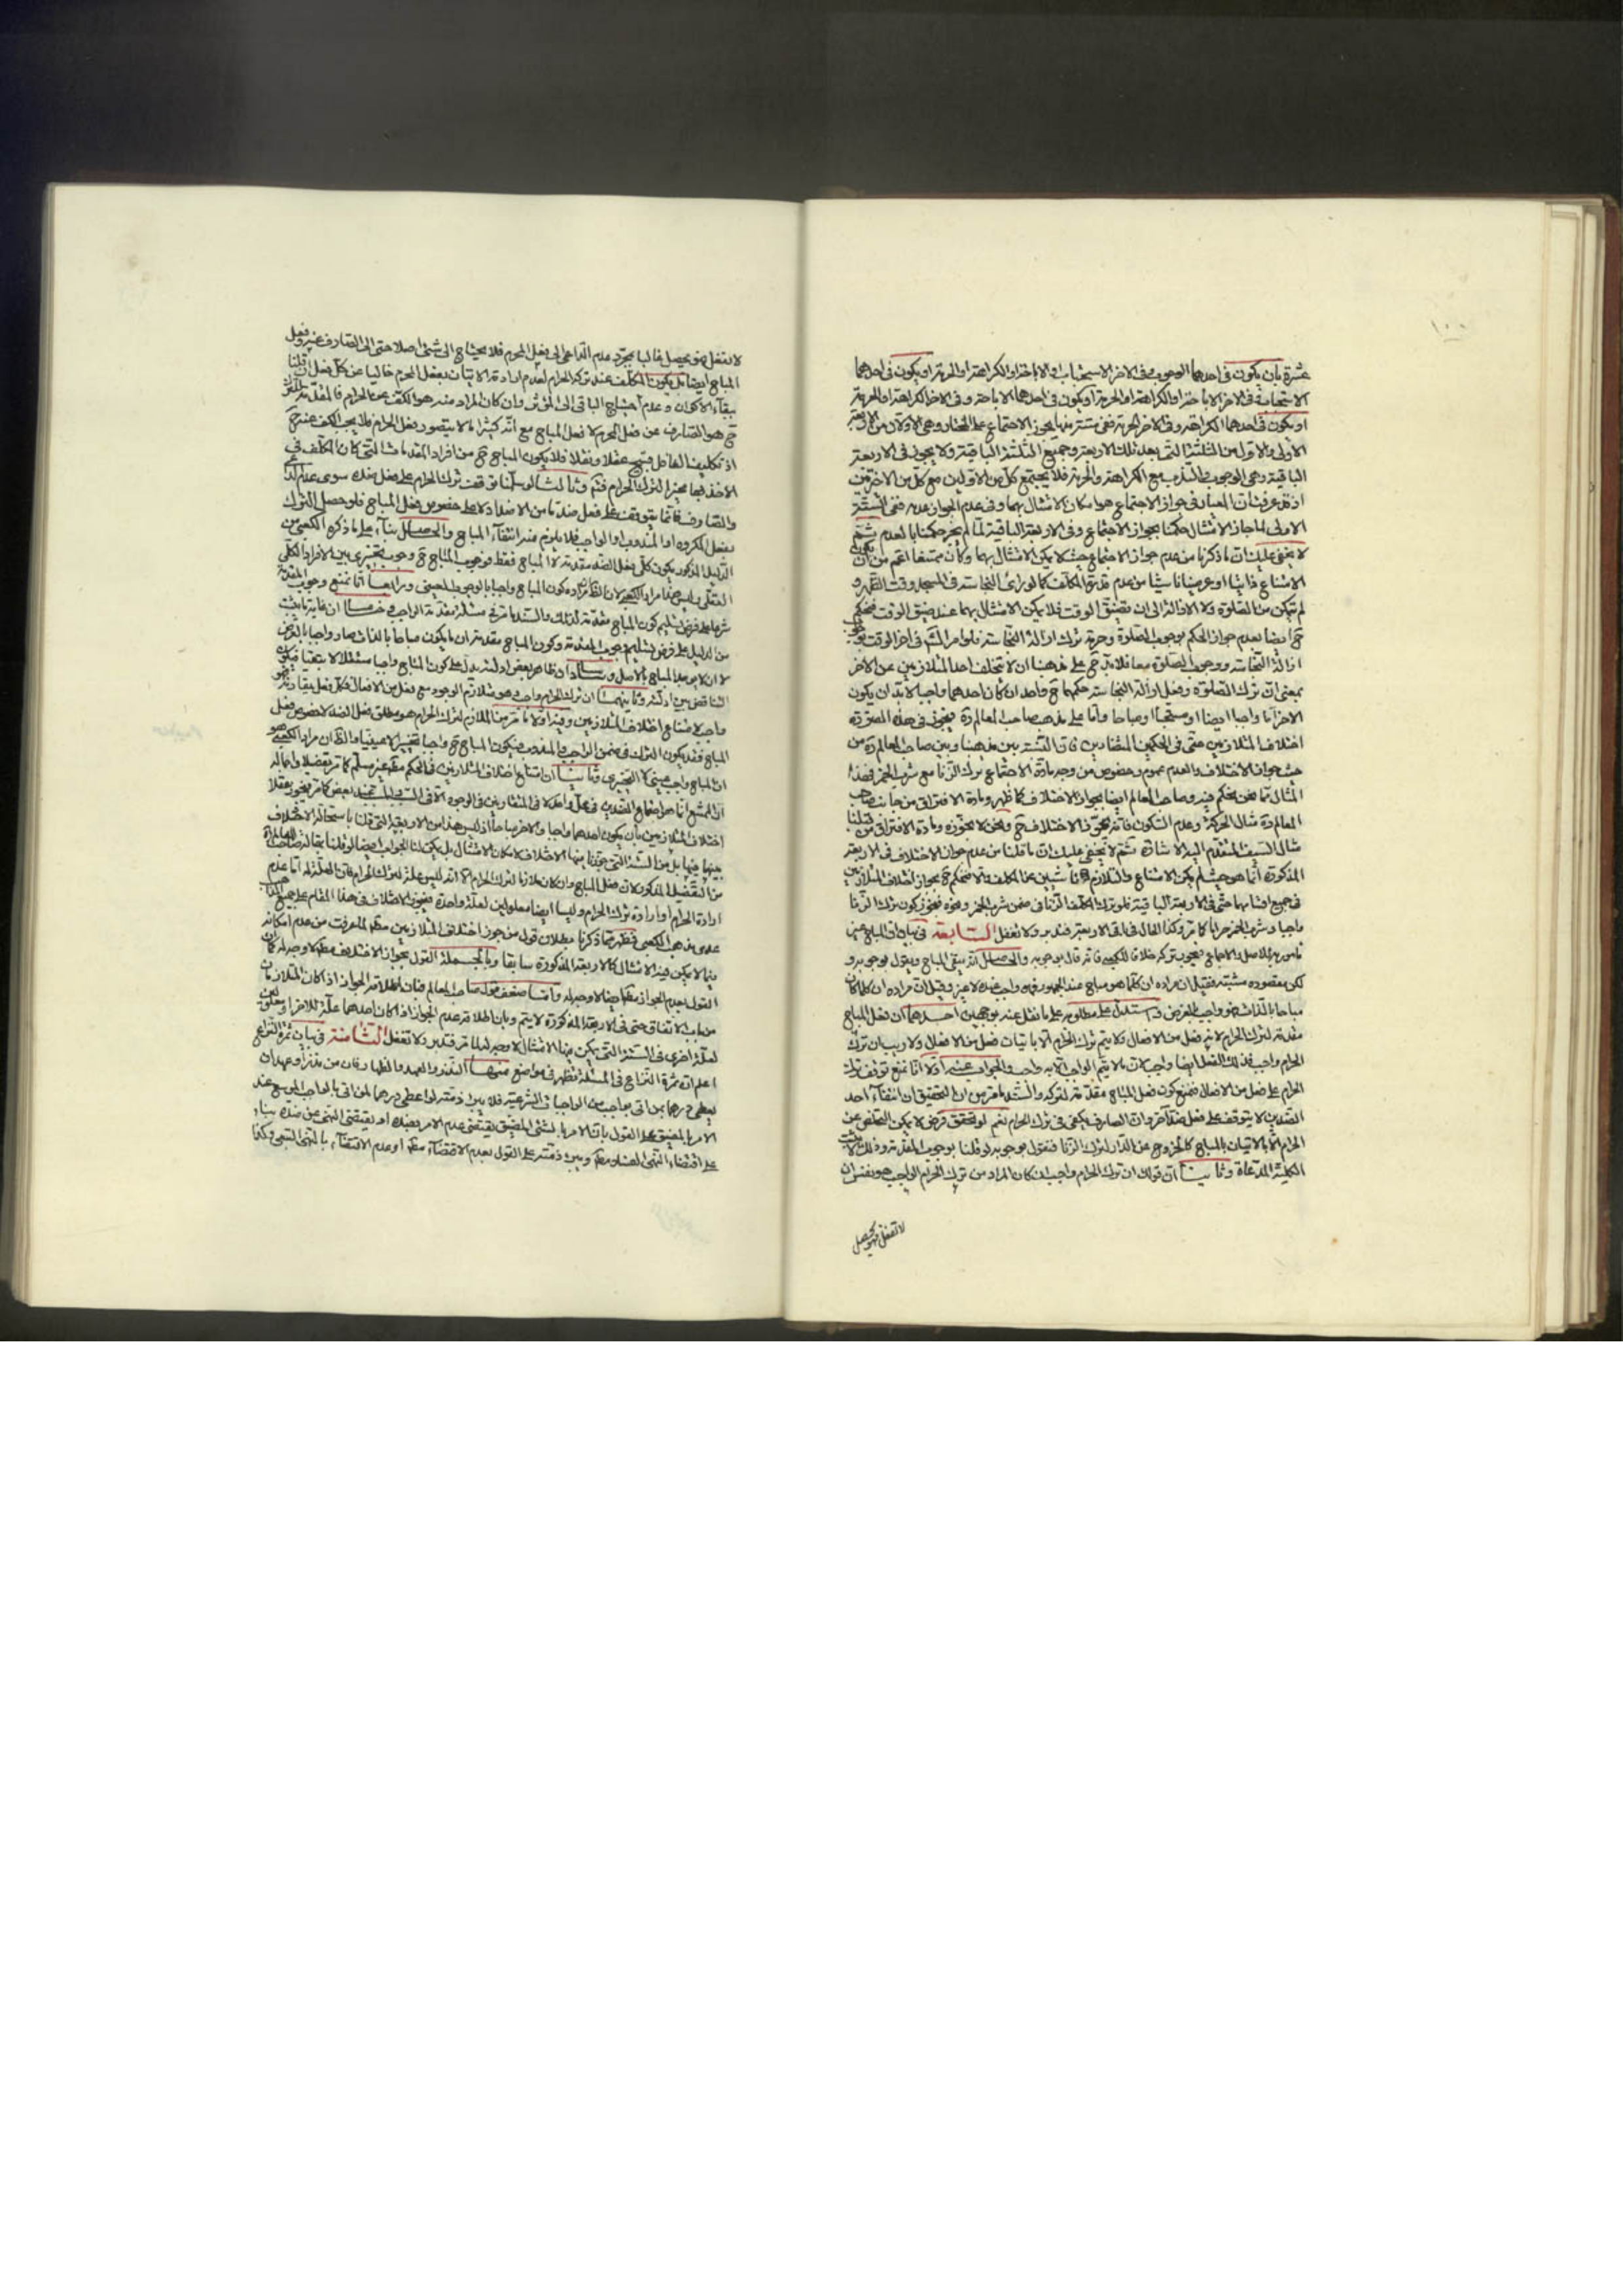 ١٠٠
عشرة بان يكون في احدهما الوجوب وفي الآخر الاستحباب او الاباحة او الكراهة او الحرمة او يكون في احدهما
الاستحباب وفي الآخر الاباحة او الكراهة او الحرمة او يكون في احدهما الاباحة وفي الاخر الكراهة او الحرمة
او يكون في احدهما الكراهة وفي الآخر الحرمة ففي ستة منها يجوز الاجتماع على المختار وهي الاولان من الاربعة
الاولى والاول من الثلثة التي بعد ذلك الاربعة وجميع الثلثة الباقية ولا يجوز في الاربعة
الباقية وهي الوجوب والندب مع الكراهة والحرمة فلا يجتمع كل من الاولين مع كل من الاخرين
اذ قد عرفت ان المعيار في جواز الاجتماع هو امكان الامتثال بهما وفي عدم الجواز عدمه ففي الستة
الاولى لما جاز الامتثال حكمنا بجواز الاجتماع وفي الاربعة الباقية لما لم يجز حكمنا بالعدم ثم
لا يخفى عليك ان ما ذكرنا من عدم جواز الاجتماع حيث لا يمكن الامتثال بهما وكان ممتنعا اعم من ان يكون
الامتناع ذاتيا او عرضيا ناشيا من عدم قدرة المكلف كما لو راى النجاسة في المسجد وقت الظهر و
لم يتمكن من الصلوة ولا الازالة الى ان تضيق الوقت فلا يمكن الامتثال بهما عند ضيق الوقت فنحكم
ح ايضا بعدم جواز الحكم بوجوب الصلوة وحرمة ترك ازالة النجاسة فلو امر الشارع في اخر الوقت بوجوب
ازالة النجاسة ووجوب الصلوة معا فلا بد ح على مذهبنا ان لا يتخلف احد المتلازمين عن الاخر
بمعنى ان ترك الصلوة وفعل ازالة النجاسة حكمهما ح واحد ان كان احدهما واجبا لا بد ان يكون
الاخر اما واجبا ايضا او مستحبا او مباحا واما على مذهب صاحب المعالم ره فيجوز في هذه الصورة
اختلاف المتلازمين حتى في الحكمين المتضادين فان النسبة بين مذهبنا وبين صاحب المعالم ره من
حيث جواز الاختلاف والعدم عموم وخصوص من وجه مادة الاجتماع ترك الزنا مع شرب الخمر فهذا
المثال مما نحن نحكم فيه وصاحب المعالم ايضا بجواز الاختلاف كما ظهر ومادة الافتراق من جانب صاحب
المعالم ره مثال الحركة وعدم السكون فانه يجوز الاختلاف ح ونحن لا نجوزه ومادة الافتراق من قبلنا
مثال السيف المتقدم اليه الاشارة ثم لا يخفى عليك ان ما قلنا من عدم جواز الاختلاف في الاربعة
المذكورة انما هو حيث لم يكن الامتناع والتلازم ناشيين عن المكلف والا فنحكم ح بجواز اختلاف المتلازمين
في جميع اقسامها حتى في الاربعة الباقية فلو ترك المكلف الزنا في ضمن شرب الخمر ونحوه فيجوز كون ترك الزنا
واجبا وشرب الخمر حراما كما مر وكذا الحال في باقي الاربعة فتدبر ولا تغفل السابعة في بيان ان المباح غير
مامور به للاصل والاجماع فيجوز تركه خلافا للكعبي فانه قال بوجوبه والحاصل انه ينفي المباح ويقول بوجوبه و
لكن مقصوده مشتبه فقيل ان مراده ان كلما هو مباح عند الجمهور فهو واجب عنده لا غير وقيل ان مراده ان كلما كان
مباحا بالذات فهو واجب بالعرض واستدل على مطلوبه على ما نقل عنه بوجهين احدهما ان فعل المباح
مقدمة لترك الحرام لانه فعل من الافعال ولا يتم ترك الحرام الا باتيان فعل من الافعال ولا ريب ان ترك
الحرام واجب فذلك الفعل ايضا واجب لان ما لا يتم الواجب الا به واجب والجواب عنه اولا انا نمنع توقف ترك
الحرام على فعل من الافعال فنمنع كون فعل المباح مقدمة لتركه والسند ما مر من ان التحقيق ان انتفاء احد
الضدين لا يتوقف على فعل ضد آخر وان الصارف يكفي في ترك الحرام نعم لو تحقق فرض لا يمكن التخلص عن
الحرام الا بالاتيان بالمباح كالخروج عن الدار لترك الزنا فنقول بوجوبه لو قلنا بوجوب المقدمة وذلك لا يثبت
الكلية المدعاة وثانيا ان قولك ان ترك الحرام واجب ان كان المراد من ترك الحرام الواجب هو نفس ان
لا تفعل فهو يحصل
لا تفعل فهو يحصل غالبا بمجرد عدم الداعي الى فعل المحرم فلا يحتاج الى شئ اصلا حتى الى الصارف غير فعل
المباح ايضا بل يكون المكلف عند تركه الحرام لعدم ارادة الاتيان بفعل المحرم خاليا عن كل فعل ان قلنا
ببقاء الاكوان وعدم احتياج الباقي الى المؤثر وان كان المراد منه هو الكف عن الحرام فالمقدمة
ح هو الصارف عن فعل المحرم لا فعل المباح مع انه كثيرا ما لا يتصور فعل الحرام فلا يجب الكف عنه ح
اذ تكليف الغافل قبيح عقلا ونقلا فلا يكون المباح ح من افراد المقدمات التي كان المكلف في
الاخذ بها مخيرا لترك الحرام فتم وثالثا لو سلمنا توقف ترك الحرام على فعل ضده سوى عدم
والصارف فانما يتوقف على فعل ضد ما من الاضداد لا على خصوص فعل المباح فلو حصل الترك
بفعل المكروه او المندوب او الواجب فلا يلزم منه انتفاء المباح والحاصل بناء على ما ذكره الكعبي من
الدليل المذكور يكون كلي فعل الضد مقدمة لا المباح فقط فوجوب المباح ح وجوب تخييري بين الافراد الكلي
العقلي وليس هذا مراد الكعبي لان الظاهر مراده كون المباح واجبا بالوجوب العيني ورابعا انا نمنع وجوب المقدمة
شرعا على فرض تسليم كون المباح مقدمة لذلك والسند ما مر في مسئلة مقدمة الواجب وخامسا ان غاية ما يثبت
من الدليل على فرض تسليم وجوب المقدمة وكون المباح مقدمة ان ما يكون مباحا بالذات صار واجبا بالعرض
لا ان لا يوجد المباح بالاصل وسادسا ان ظاهر بعض ادلته يدل على كون المباح واجبا مستقلا لا تبعيا فيكون
التناقض بين ادلته وثانيهما ان ترك الحرام واجب وهو متلازم الوجود مع فعل من الافعال فكل فعل يقارنه فهو
واجب لامتناع اختلاف المتلازمين وفيه اولا ما مر من ان الملازم لترك الحرام هو مطلق فعل الضد لا خصوص فعل
المباح فقد يكون الترك في ضمن الواجب والمندوب فيكون المباح ح واجبا تخييرا لا عينيا والظاهر ان مراد الكعبي هو
ان المباح واجب عيني لا التخييري وثانيا ان امتناع اختلاف المتلازمين في الحكم مطلقا غير مسلم كما مر تفصيلا واجماله
ان الممتنع انما هو اجتماع الضدين في محل واحد لا في المتقارنين في الوجود الا في السبب والمسبب عند بعض كما مر فيجوز عقلا
اختلاف المتلازمين بان يكون احدهما واجبا والاخر مباحا اذ ليس هذا من الاربعة التي قلنا باستحالة الاختلاف
بينها فيها بل من الستة التي جوزنا فيها الاختلاف لامكان الامتثال بل يمكن لنا الجواب ايضا لو قلنا بمقالة صاحب المعالم ره
من التفصيل المذكور لان فعل المباح وان كان ملازما لترك الحرام الا انه ليس علة لترك الحرام فان العلة له اما عدم
ارادة الحرام او ارادة ترك الحرام وليسا ايضا معلولين لعلة واحدة فيجوز الاختلاف في هذا المقام على جميع المذاهب
عدى مذهب الكعبي فظهر مما ذكرنا بطلان قول من جوز اختلاف المتلازمين مطلقا لما عرفت من عدم امكانه
فيما لا يمكن فيه الامتثال كالاربعة المذكورة سابقا وبالجملة القول بجواز الاختلاف مطلقا لا وجه له كما ان
القول بعدم الجواز مطلقا ايضا لا وجه له واما ضعف قول صاحب المعالم فبان اطلاقه الجواز اذا كان المتلازمان
من باب الاتفاق حتى في الاربعة المذكورة لا يتم وبان اطلاقه عدم الجواز اذا كان احدهما علة للاخر او معلولين
لعلة اخرى في الستة التي يمكن فيها الامتثال لا وجه له لما مر فتدبر ولا تغفل الثامنة في بيان ثمرة النزاع
اعلم ان ثمرة النزاع في المسئلة تظهر في مواضع منها النذر والعهد والظهار فان من نذر او عهد ان
يعطي درهما من اتى بواجب من الواجبات الشرعية فلا يبرء ذمته لو اعطى درهما لمن اتى بالواجب الموسع عند
الامر بالمضيق على القول بان الامر بالشئ المضيق يقتضي عدم الامر بضده او يقتضي النهي عن ضده بناء
على اقتضاء النهي الفساد مطلقا ويبرء ذمته على القول بعدم الاقتضاء مطلقا او عدم الاقتضاء بالنهي التبعي وكذا